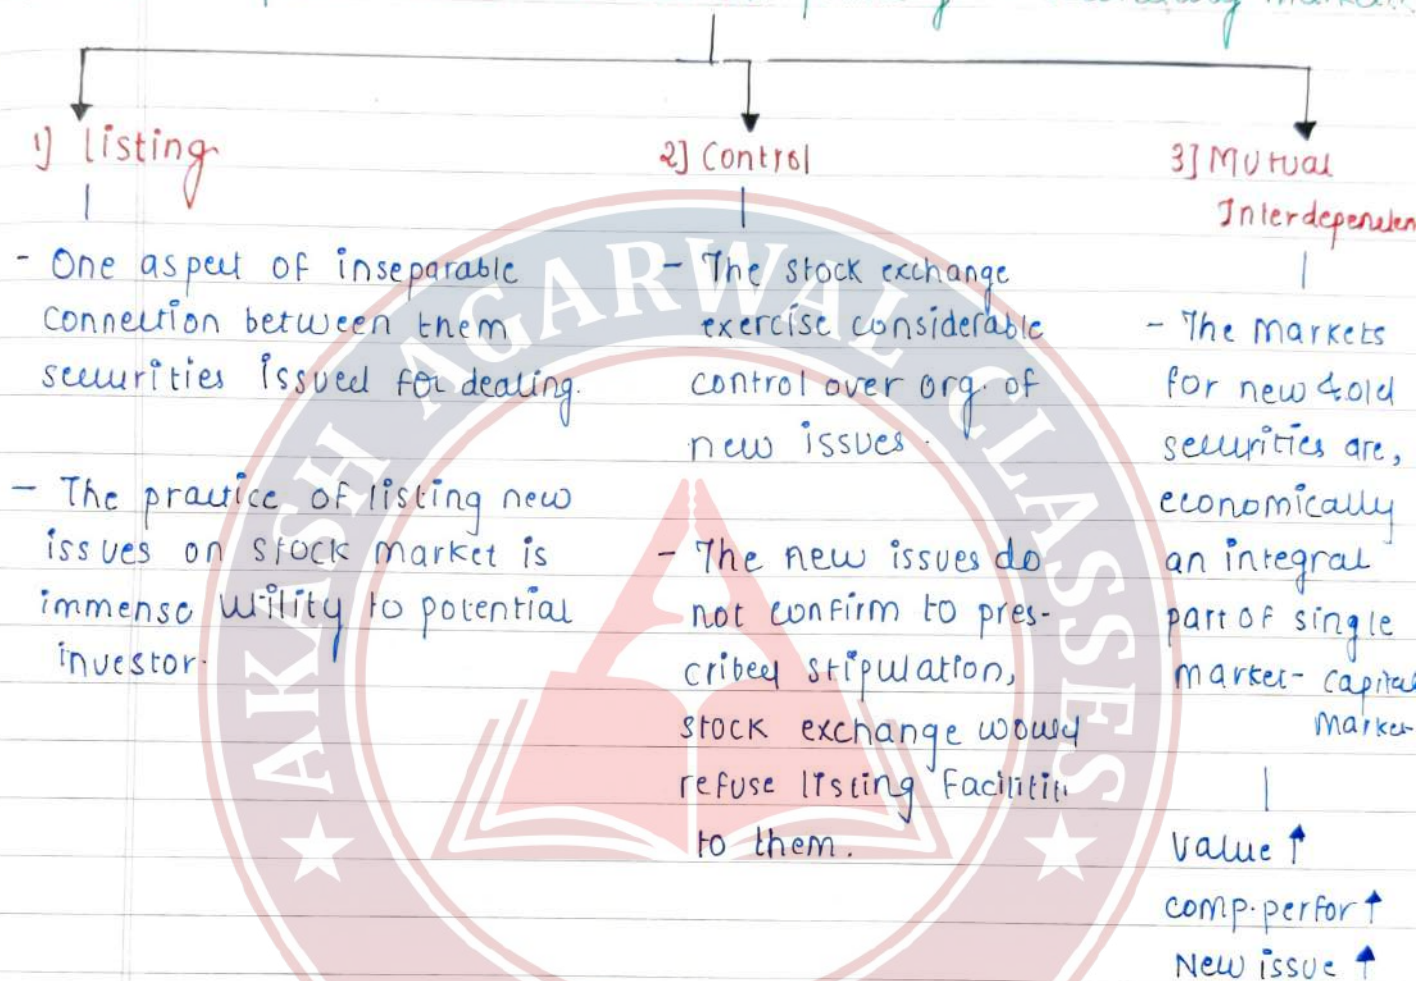 Secondary Market
1] listing
2] Control
3] Mutual
Interdependen
- One aspect of inseparable
connection between them
securities issued for dealing.
- The practice of listing new
issues on stock market is
immense utility to potential
investor.
- The stock exchange
exercise considerable
control over org. of
new issues.
- The new issues do
not confirm to pres-
cribed stipulation,
stock exchange would
refuse listing facilitii
to them.
- The markets
for new & old
securities are,
economically
an integral
part of single
market- capital
market
value ↑
comp. perfor ↑
New issue ↑
AKASH AGARWAL CLASSES